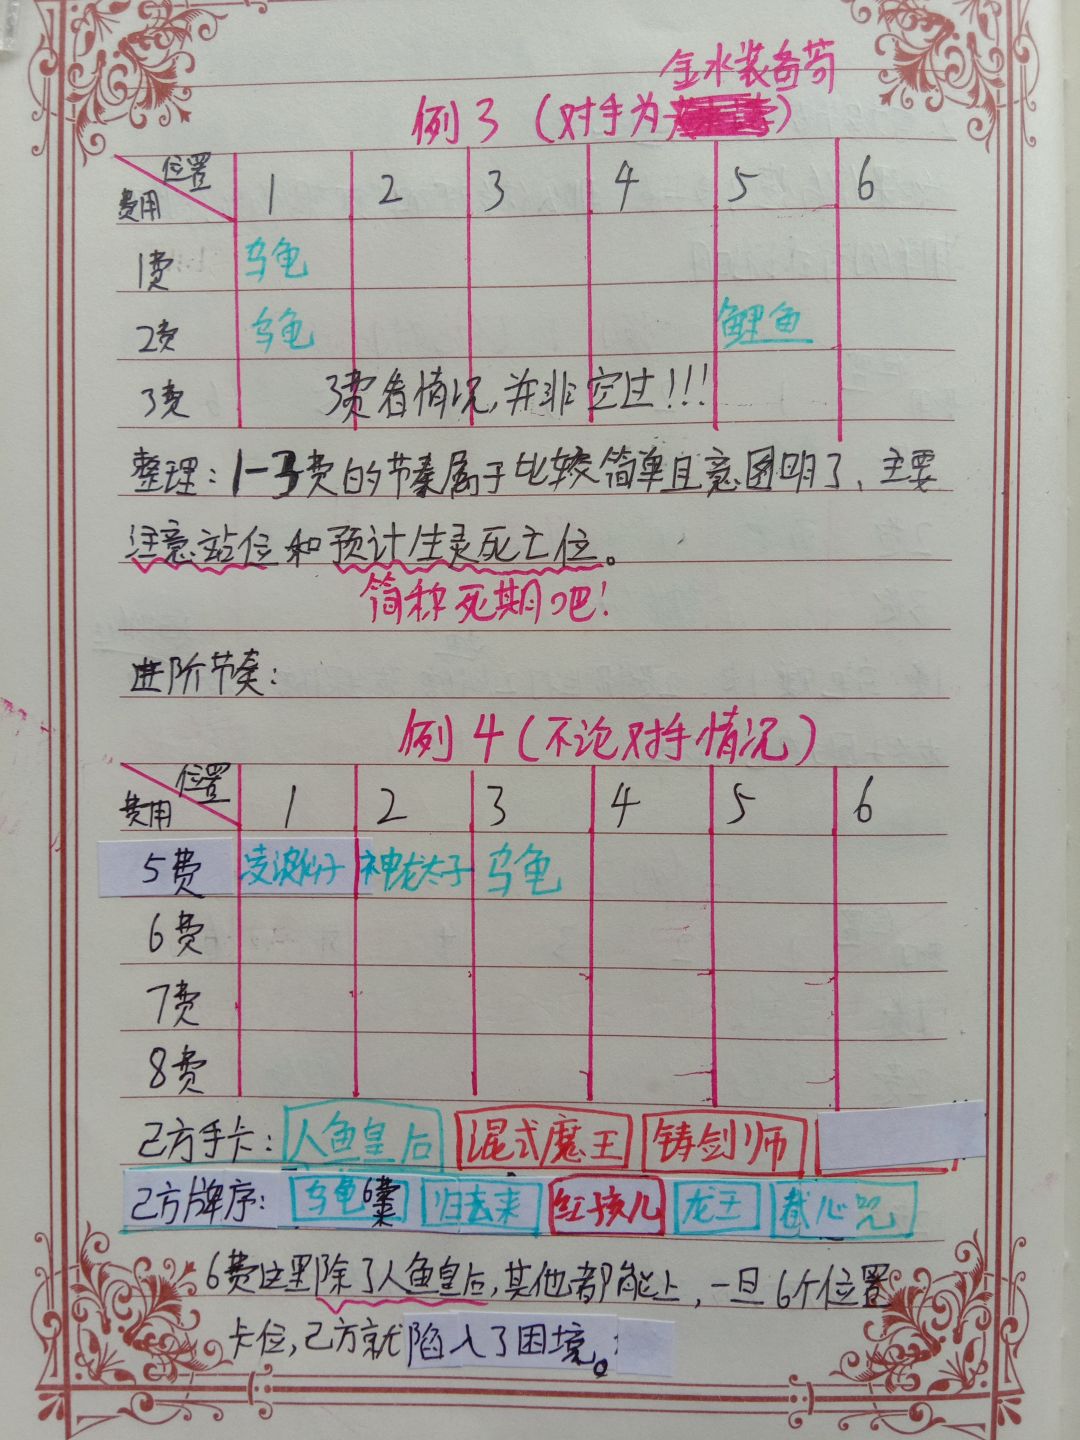 金水装备芬
例3(对手为)
位置
费用 1 2 3 4 5 6
1费 乌龟
2费 乌龟 鲤鱼
3费 3费看情况,并非空过!!!
整理:1-3费的节奏属于比较简单且意图明了、主要
注意站位和预计生灵死亡位。
简称死期吧!
进阶节奏:
例4(不论对手情况)
位置
费用 1 2 3 4 5 6
5费 凌波仙子 神龙太子 乌龟
6费
7费
8费
己方手卡: 人鱼皇后 混式魔王 铸剑师
己方牌序: 乌龟6费 归去来 红孩儿 龙王 截心咒
6费这里除了人鱼皇后,其他都能上,一旦6个位置
卡位,己方就陷入了困境。